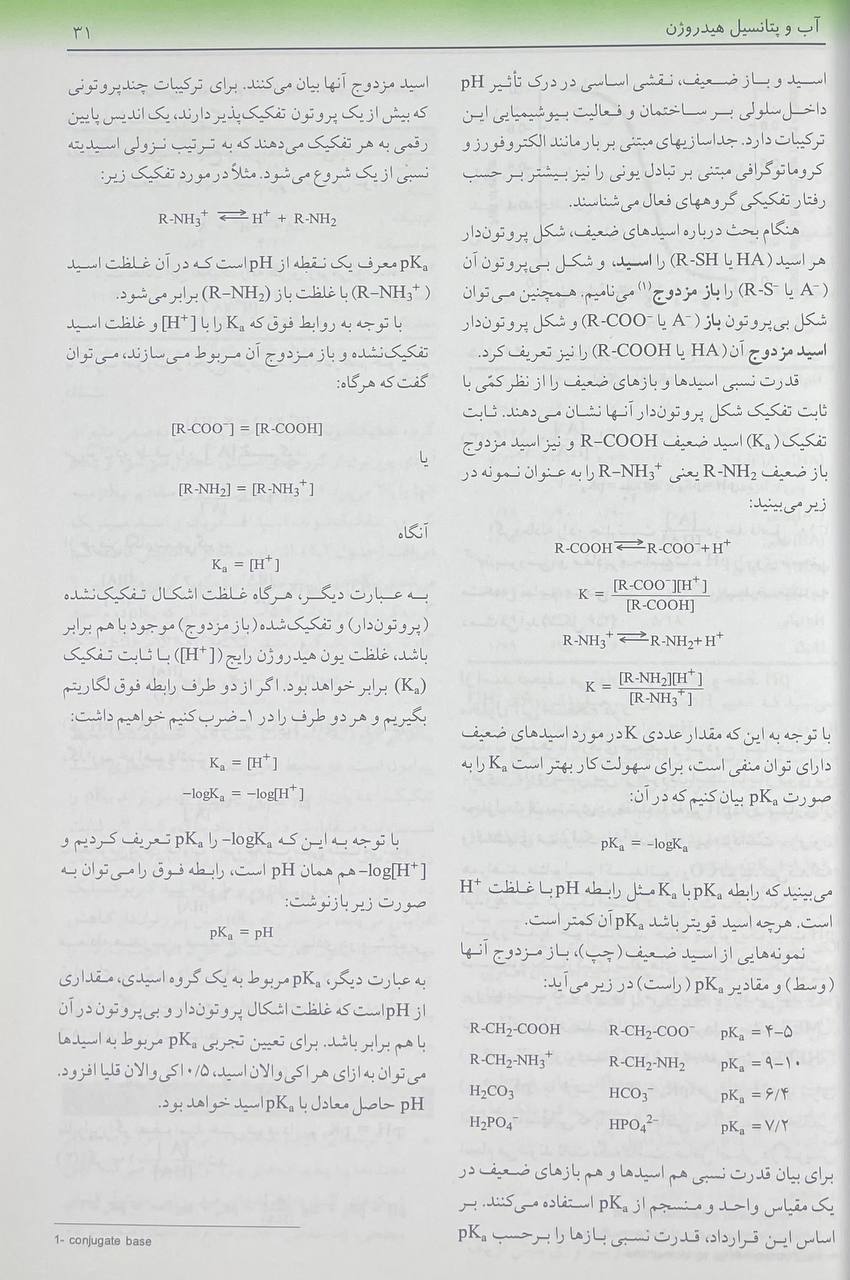 آب و پتانسیل هیدروژن
۳۱
اسید و باز ضعیف، نقشی اساسی در درک تأثیر pH
داخل سلولی بر ساختمان و فعالیت بیوشیمیایی این
ترکیبات دارد. جداسازیهای مبتنی بر بار مانند الکتروفورز و
کروماتوگرافی مبتنی بر تبادل یونی را نیز بیشتر بر حسب
رفتار تفکیکی گروههای فعال می‌شناسند.
هنگام بحث درباره اسیدهای ضعیف، شکل پروتون‌دار
هر اسید (HA یا R-SH) را اسید، و شکل بی‌پروتون آن
(A⁻ یا R-S⁻) را باز مزدوج⁽¹⁾ می‌نامیم. همچنین می‌توان
شکل بی‌پروتون باز (A⁻ یا R-COO⁻) و شکل پروتون‌دار
اسید مزدوج آن (HA یا R-COOH) را نیز تعریف کرد.
قدرت نسبی اسیدها و بازهای ضعیف را از نظر کمّی با
ثابت تفکیک شکل پروتون‌دار آنها نشان می‌دهند. ثابت
تفکیک (Kₐ) اسید ضعیف R–COOH و نیز اسید مزدوج
باز ضعیف R-NH₂ یعنی R–NH₃⁺ را به عنوان نمونه در
زیر می‌بینید:
R-COOH ⇌ R-COO⁻ + H⁺
K = [R-COO⁻][H⁺] / [R-COOH]
R-NH₃⁺ ⇌ R-NH₂ + H⁺
K = [R-NH₂][H⁺] / [R-NH₃⁺]
با توجه به این که مقدار عددی K در مورد اسیدهای ضعیف
دارای توان منفی است، برای سهولت کار بهتر است Kₐ را به
صورت pKₐ بیان کنیم که در آن:
pKₐ = –logKₐ
می‌بینید که رابطه pKₐ با Kₐ مثل رابطه pH با غلظت H⁺
است. هرچه اسید قویتر باشد pKₐ آن کمتر است.
نمونه‌هایی از اسید ضعیف (چپ)، باز مزدوج آنها
(وسط) و مقادیر pKₐ (راست) در زیر می‌آید:
R-CH₂-COOH R-CH₂-COO⁻ pKₐ = ۴–۵
R-CH₂-NH₃⁺ R-CH₂-NH₂ pKₐ = ۹–۱۰
H₂CO₃ HCO₃⁻ pKₐ = ۶/۴
H₂PO₄⁻ HPO₄²⁻ pKₐ = ۷/۲
برای بیان قدرت نسبی هم اسیدها و هم بازهای ضعیف در
یک مقیاس واحد و منسجم از pKₐ استفاده می‌کنند. بر
اساس این قرارداد، قدرت نسبی بازها را برحسب pKₐ
اسید مزدوج آنها بیان می‌کنند. برای ترکیبات چندپروتونی
که بیش از یک پروتون تفکیک‌پذیر دارند، یک اندیس پایین
رقمی به هر تفکیک می‌دهند که به ترتیب نزولی اسیدیته
نسبی از یک شروع می‌شود. مثلاً در مورد تفکیک زیر:
R-NH₃⁺ ⇌ H⁺ + R-NH₂
pKₐ معرف یک نقطه از pH است که در آن غلظت اسید
(R–NH₃⁺) با غلظت باز (R–NH₂) برابر می‌شود.
با توجه به روابط فوق که Kₐ را با [H⁺] و غلظت اسید
تفکیک‌نشده و باز مزدوج آن مربوط می‌سازند، می‌توان
گفت که هرگاه:
[R-COO⁻] = [R-COOH]
یا
[R-NH₂] = [R-NH₃⁺]
آنگاه
Kₐ = [H⁺]
به عبارت دیگر، هرگاه غلظت اشکال تفکیک‌نشده
(پروتون‌دار) و تفکیک‌شده (باز مزدوج) موجود با هم برابر
باشد، غلظت یون هیدروژن رایج ([H⁺]) با ثابت تفکیک
(Kₐ) برابر خواهد بود. اگر از دو طرف رابطه فوق لگاریتم
بگیریم و هر دو طرف را در ۱- ضرب کنیم خواهیم داشت:
Kₐ = [H⁺]
–logKₐ = –log[H⁺]
با توجه به این که –logKₐ را pKₐ تعریف کردیم و
–log[H⁺] هم همان pH است، رابطه فوق را می‌توان به
صورت زیر بازنوشت:
pKₐ = pH
به عبارت دیگر، pKₐ مربوط به یک گروه اسیدی، مقداری
از pH است که غلظت اشکال پروتون‌دار و بی‌پروتون در آن
با هم برابر باشد. برای تعیین تجربی pKₐ مربوط به اسیدها
می‌توان به ازای هر اکی‌والان اسید، ۰/۵ اکی‌والان قلیا افزود.
pH حاصل معادل با pKₐ اسید خواهد بود.
1- conjugate base